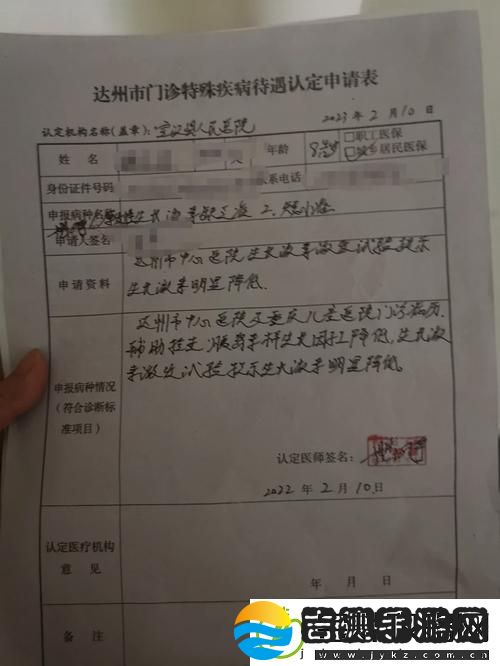 达州市门诊特殊疾病待遇认定申请表
认定机构名称(盖章): 宣汉县人民医院 2023 年 2 月 10 日
姓 名 年龄 8岁 □职工医保
□城乡居民医保
身份证件号码 系电话
申报病种名称 生长激素缺乏症 2.
申请人签名
申请资料 达州市中心医院生长激素激发试验提示
生长激素明显降低.
申报病种情况
(符合诊断标
准项目)
达州市中心医院及重庆儿童医院门诊病历.
辅助检查:胰岛素样生长因子降低,生长激
素激发试验提示生长激素明显降低。
认定医师签名:
2022 年 2 月 10 日
认定医疗机构
意 见
年 月 日
备 注
吉奥手游网
www.jykz.com.cn